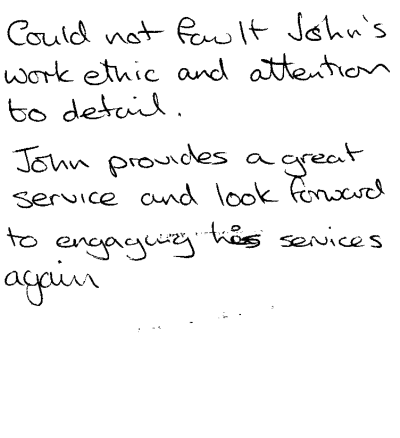 Could not fault John's
work ethic and attention
to detail.
John provides a great
service and look forward
to engaging his services
again